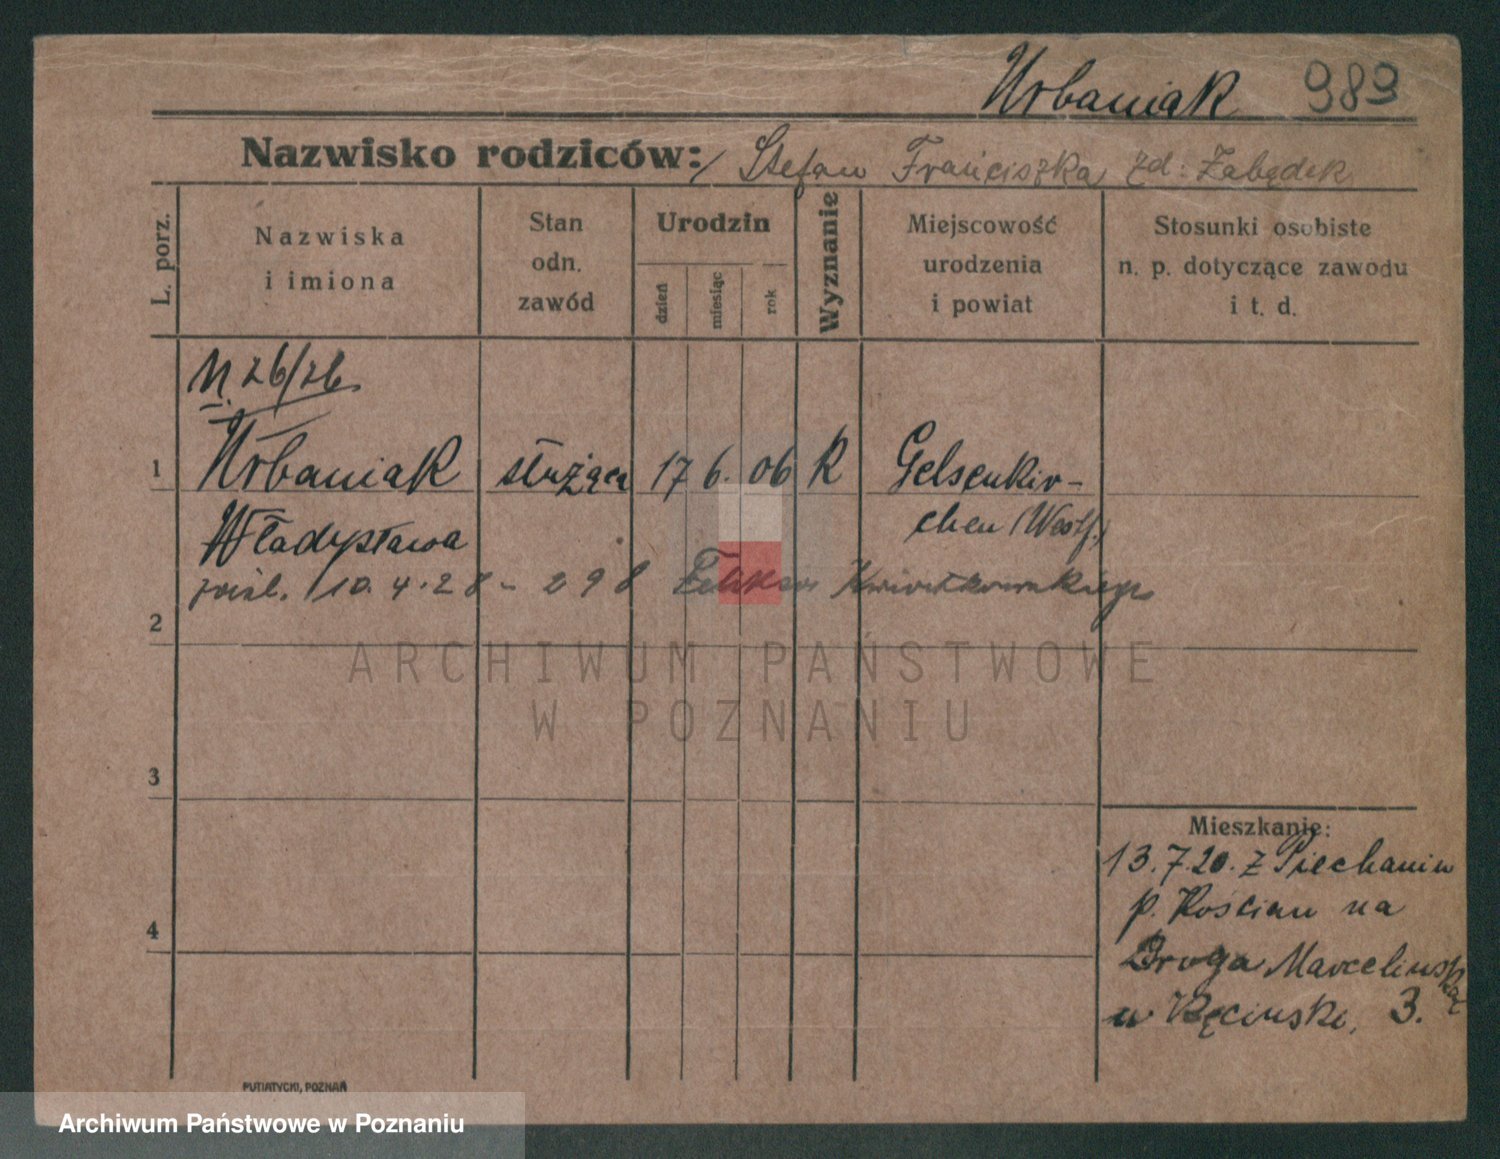 Urbaniak 983
Nazwisko rodziców: Stefan Franciszka zd: Zabędek
L. porz.
Nazwiska
i imiona
Stan
odn.
zawód
Urodzin
dzień
miesiąc
rok
Wyznanie
Miejscowość
urodzenia
i powiat
Stosunki osobiste
n. p. dotyczące zawodu
i t. d.
26/26
1 Urbaniak służąca 17 6. 06 R Gelsenkir-
Władysława chen (Westf.)
10.4.28 - 298 Kwiatkowskiego
2
3
4
Mieszkanie:
13.7.20. z Piechanin
p. Kościan na
Droga Marcelińska
w 3.
PUTIATYCKI, POZNAŃ
ARCHIWUM PAŃSTWOWE
W POZNANIU
Archiwum Państwowe w Poznaniu